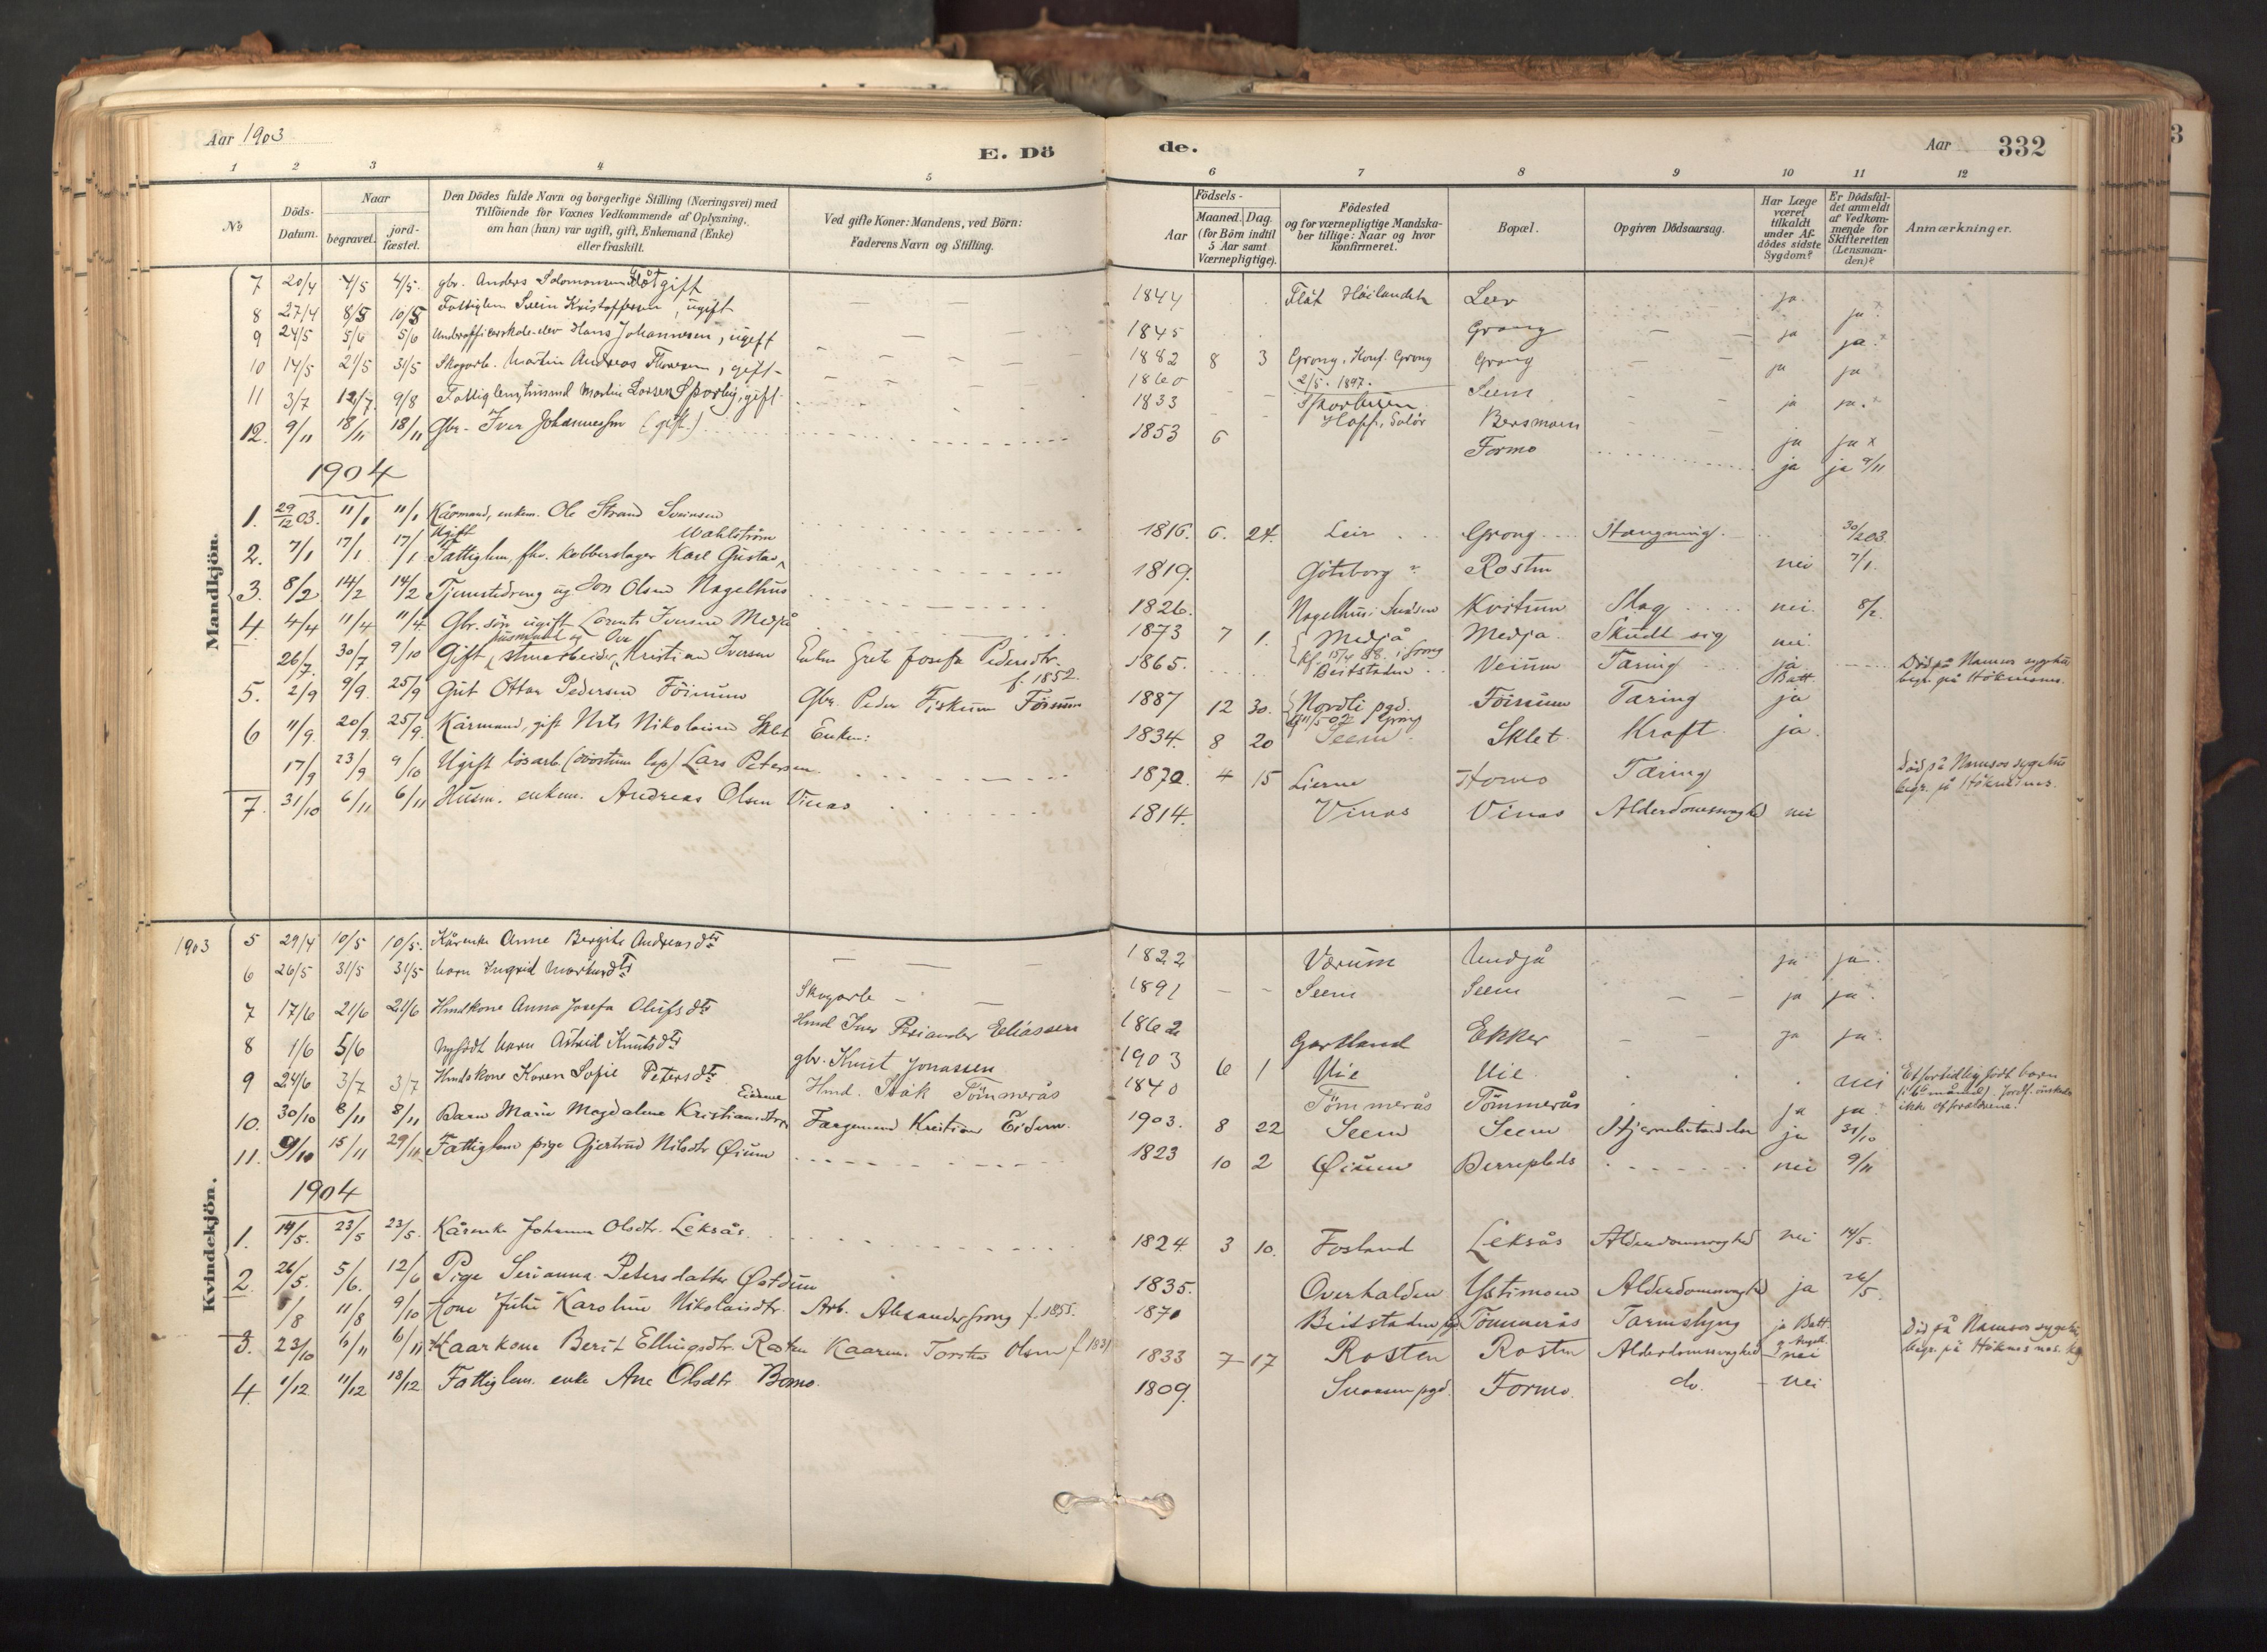 Aar 1903
E. Dö
de.
Aar
332
1 2 3 4 5 6 7 8 9 10 11 12
No
Döds-Datum.
Naar
begravet.
jord-fæstet.
Den Dödes fulde Navn og borgerlige Stilling (Næringsvei) med
Tilföiende for Voxnes Vedkommende af Oplysning,
om han (hun) var ugift, gift, Enkemand (Enke)
eller fraskilt.
Ved gifte Koner: Mandens, ved Börn:
Faderens Navn og Stilling.
Födsels-
Aar
Maaned. Dag.
(for Börn indtil
5 Aar samt
Værnepligtige).
Födested
og for værnepligtige Mandska-
ber tillige: Naar og hvor
konfirmeret.
Bopæl.
Opgiven Dödsaarsag.
Har Læge
været
tilkaldt
under Af-
dödes sidste
Sygdom?
Er Dödsfal-
det anmeldt
af Vedkom-
mende for
Skifteretten
(Lensman-
den)?
Anmærkninger.
Mandkjön.
7 20/4 4/5 4/5 gbr. Anders Solomonsen Flåt gift 1844 Flåt Höilandet ja ja
8 27/4 8/5 10/5 Fattiglem Svein Kristoffersen, ugift 1845 Grong ja ja
9 24/5 5/6 5/6 Underofficerskole-elev Hans Johannesen, ugift 1882 8 3 Grong. Konf. Grong 2/5. 1897. Grong ja ja
10 14/5 21/5 31/5 Skogarb. Martin Andreas Thoresen, gift 1860 Seem ja ja
11 3/7 12/7 9/8 Fattiglem, husmd Martin Larsen gift 1833 Bersmoen ja ja
12. 9/11 18/11 18/11 Gbr. Iver Johannessen (gift.) 1853 6 Formo ja ja 9/11
1904
1. 29/12 03. 11/1 11/1 Kårmand, enkem. Ole Strand Sveinsen 1816. 6. 24. Leir Grong Hængning. 30/12 03
2. 7/1 17/1 17/1 Ugift Fattiglem, fhv. Kobberslager Karl Gustav Wahlström 1819. Göteborg Rosten nei 7/1.
3. 8/2 14/2 14/2 Tjenestedreng ug Jon Olsen Nagelhus 1826. Nagelhus: Kvitum Slag nei. 8/2.
4. 4/4 11/4 11/4 Gbr. sön ugift Lorents Iversen Medjå 1873 7 1. Medjå kf. 15/4 88. i Grong Medja Skudt sig nei
26/7 30/7 9/10 Gift husmand og Kristian Iversen Enken Grete Josefa Pedersdtr. f. 1852. 1865. Beitstaden Veium Tæring ja Batt Död på Namsos sygehus begr. på Höknesnes.
5. 2/9 9/9 25/9 Gut Ottar Pedersen Föinum Gbr. Peder Fiskum Föinum 1887 12 30. Nordli pgd. Grong Föinum Tæring ja
6 11/9. 20/9. 25/9. Kårmand, gift Nils Nikolaisen Sklet Enken: 1834. 8 20 Seem Sklet Kræft ja.
17/9 23/9 9/10 Ugift lösarb. Lars Petersen 1870. 4 15 Lierne Homo Tæring Död på Namsos sygehus begr. på Höknesnes.
7. 31/10 6/11 6/11 Husm. enkem. Andreas Olsen Vinas 1814. Vinas Vinas Alderdomssvaghed nei
Kvindekjön.
1903
5 29/4 10/5 10/5. Kårenke Anne Bergite Andreasdtr 1822 Værum Medjå ja ja
6 26/5 31/5 31/5 barn Ingrid Skogarb 1891 Seem Seem ja ja
7 17/6 21/6 21/6 Hmdkone Anna Josefa Olufsdtr Hmd Iver Eliassen 1862 Gartland Ekker ja ja
8 1/6 5/6 Nyfödt barn Astrid Knutsdtr gbr. Knut Jonassen 1903 6 1 Uie Uie nei Et fortidlig födt barn (i 6te måned). Jordf. önskedes ikke af forældrene.
9 24/6 3/7 3/7 Hmdskone Karen Sofie Petersdtr Hmd. Isak Tömmerås 1840 Tömmerås Tömmerås ja ja
10. 30/10 8/11 8/11 Barn Marie Magdalene Kristiansdtr Færgemand Kristian Eidem. 1903. 8 22 Seem Seem ja 31/10
11. 9/10 15/11 29/11 Fattiglem pige Gjertrud Nilsdtr Øium 1823 10 2 Øium nei 9/11
1904
1. 14/5. 23/5 23/5. Kårenke Johanna Olsdtr. Leksås. 1824. 3 10. Fosland Leksås Alderdomssvaghed nei 14/5.
2. 26/5. 5/6. 12/6 Pige Serianna Petersdatter Østdun 1835. Overhalden Ystimoen Alderdomssvaghed ja 26/5.
/8 11/8 9/10 Kone Julie Karoline Nikolaisdtr. Arb. Alexander Grong f. 1855. 1870 Beidstaden Tömmerås Tarmslyng ja Batt Död på Namsos sygehus begr. på Höknesnes.
3. 23/10 6/11 6/11 Kaarkone Berit Ellingsdtr. Rosten Kaarm. Torsten Olsen f 1831 1833 7 17 Rosten Rosten Alderdomssvaghed nei
4. 1/12 11/12 18/12 Fattiglem. enke Ane Olsdtr Bomo. 1809. Snaasen pgd. Formo. do. nei